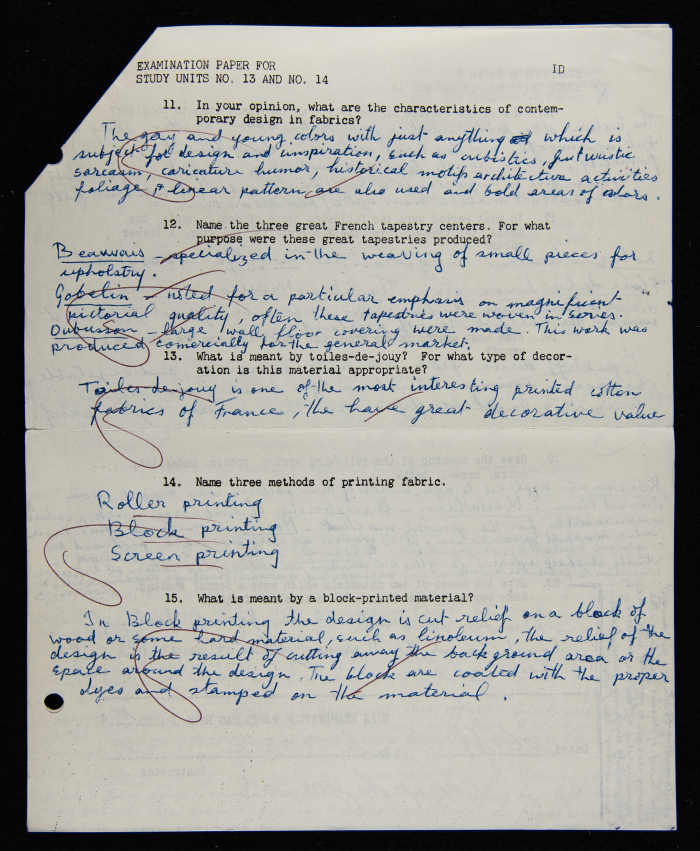 EXAMINATION PAPER FOR
STUDY UNITS NO. 13 AND NO. 14
ID
11. In your opinion, what are the characteristics of contem-
porary design in fabrics?
The gay and young colors with just anything which is
subject for design and inspiration, such as cubistics, futuristic
sarcasm, caricature humor, historical motifs architecture activities
foliage & linear pattern, are also used and bold areas of colors.
12. Name the three great French tapestry centers. For what
purpose were these great tapestries produced?
Beauvais - specialized in the weaving of small pieces for
upholstry.
Gobelin - noted for a particular emphasis on magnificent
pictorial quality, often these tapestries were woven in series.
Oubusson - large wall, floor covering were made. This work was
produced comercially for the general market.
13. What is meant by toiles-de-jouy? For what type of decor-
ation is this material appropriate?
Toiles de jouy is one of the most interesting printed cotton
fabrics of France, the have great decorative value
14. Name three methods of printing fabric.
Roller printing
Block printing
Screen printing
15. What is meant by a block-printed material?
In Block printing the design is cut relief on a block of
wood or some hard material, such as linoleum, the relief of the
design is the result of cutting away the background area or the
space around the design. The block are coated with the proper
dyes and stamped on the material.